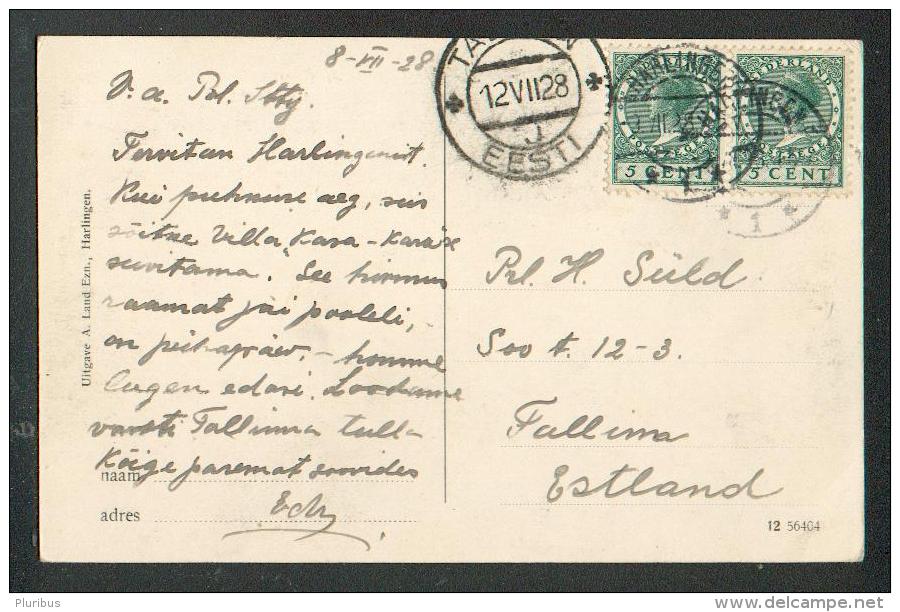 8-VII-28
V. a. Prl.
Tervitan Harlingenist.
Kui puhkuse aeg, siis
sõitke Villa "Kasa-Kara"sse
suvitama. See hirmus
raamat jäi pooleli, -
on pühapäev, - homme
lugen edasi. Loodame
varsti Tallinna tulla
Kõige paremat soovides
naam
adres
Uitgave A. Land Ezn., Harlingen.
12VII28
J
EESTI
NEDERLAND
5 CENT
5 CENT
1
Prl. H. Süld
Soo t. 12-3.
Tallinna
Estland
12 56404
Pluribus
delcampe.net